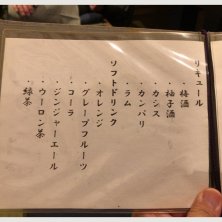 リキュール
・梅酒
・柚子酒
・カシス
・カンパリ
・ラム
ソフトドリンク
・オレンジ
・グレープフルーツ
・コーラ
・ジンジャーエール
・ウーロン茶
・緑茶